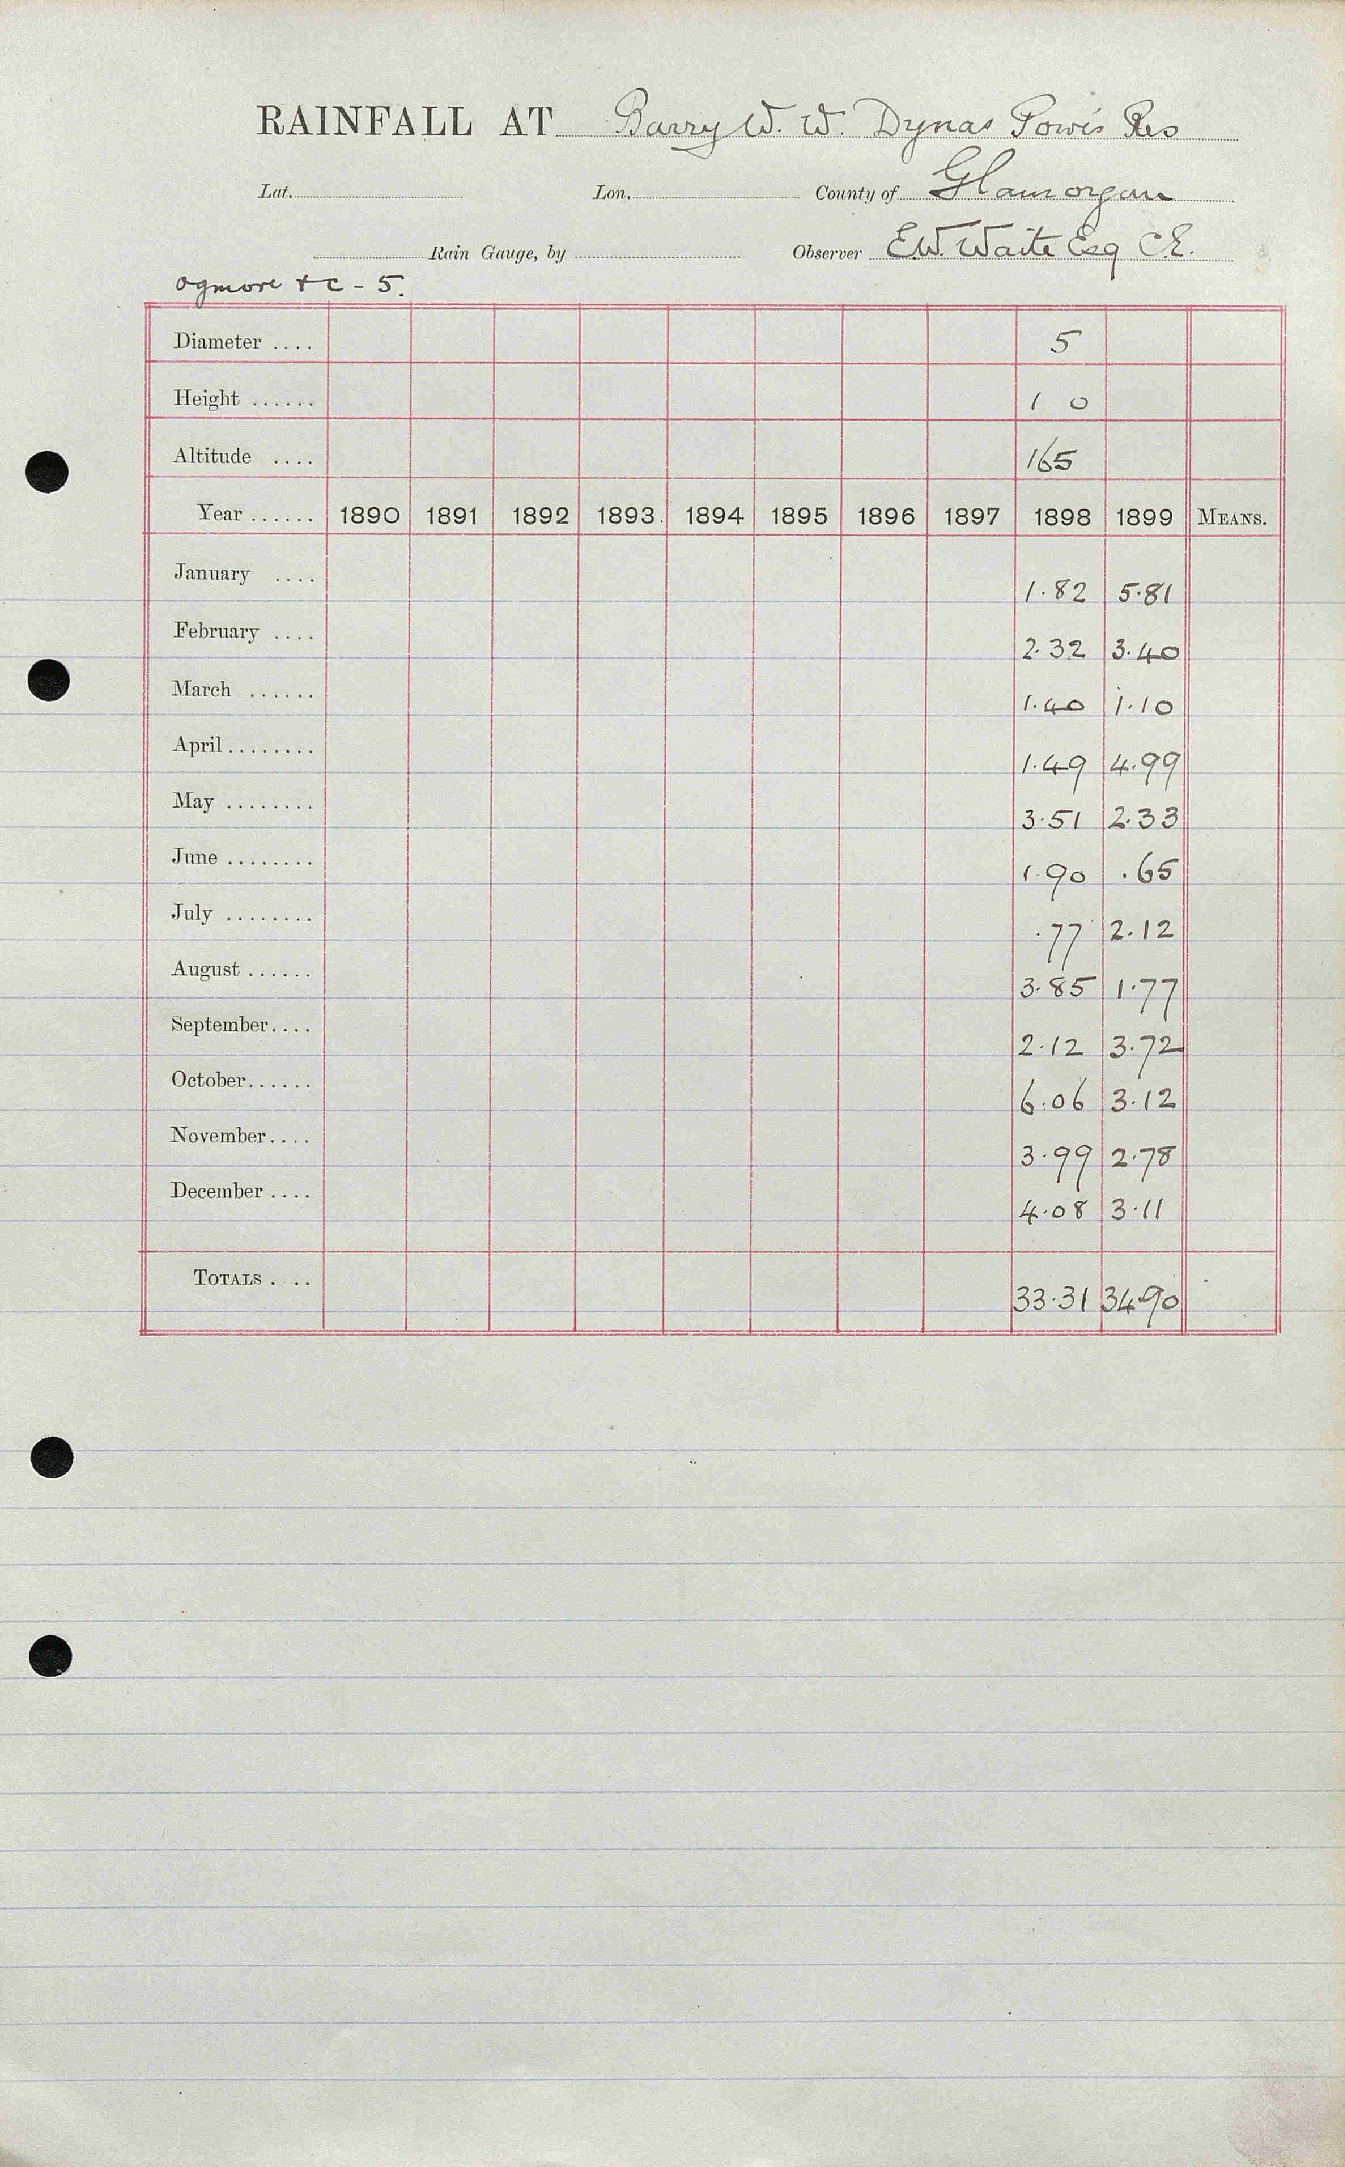 RAINFALL AT Barry W. W. Dynas Powis Res
Lat. Lon. County of Glamorgan
Rain Gauge, by Observer E.W. Waite Esq C.E.
Ogmore &c - 5.
Diameter .... 5
Height ...... 1 0
Altitude .... 165
Year ...... 1890 1891 1892 1893 1894 1895 1896 1897 1898 1899 MEANS.
January .... 1.82 5.81
February .... 2.32 3.40
March ...... 1.40 1.10
April ........ 1.49 4.99
May ........ 3.51 2.33
June ........ 1.90 .65
July ........ .77 2.12
August ...... 3.85 1.77
September.... 2.12 3.72
October...... 6.06 3.12
November.... 3.99 2.78
December .... 4.08 3.11
TOTALS .... 33.31 34.90